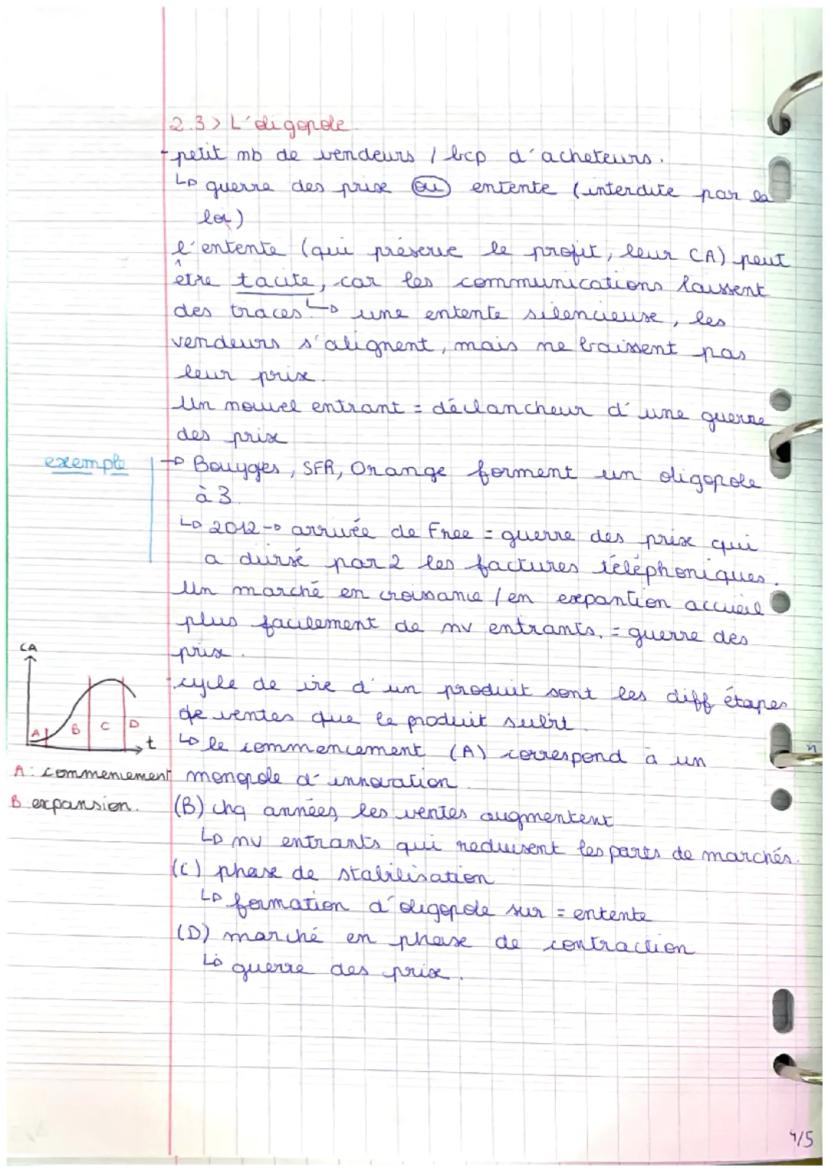 2.3> L'oligopole
- petit nb de vendeurs / bcp d'acheteurs.
↳ guerre des prix ou entente (interdite par la
loi)
l'entente (qui préserve le profit, leur CA) peut
être tacite, car les communications laissent
des traces. ↳ une entente silencieuse, les
vendeurs s'alignent, mais ne baissent pas
leur prix.
Un nouvel entrant = déclancheur d'une guerre
des prix
exemple → Bouyges, SFR, Orange forment un oligopole
à 3.
↳ 2012 → arrivée de Free = guerre des prix qui
a divisé par 2 les factures téléphoniques.
Un marché en croissance / en expantion accueil
plus facilement de nv entrants. = guerre des
prix.
- cycle de vie d'un produit sont les diff étapes
de ventes que le produit subit.
↳ le commencement (A) correspond à un
monopole d'innovation.
(B) chq années les ventes augmentent
↳ nv entrants qui reduisent les parts de marchés.
(C) phase de stabilisation
↳ formation d'oligopole sur = entente
(D) marché en phase de contraction
↳ guerre des prix.
CA
A B C D
t
A : commencement
B expansion.
4/5